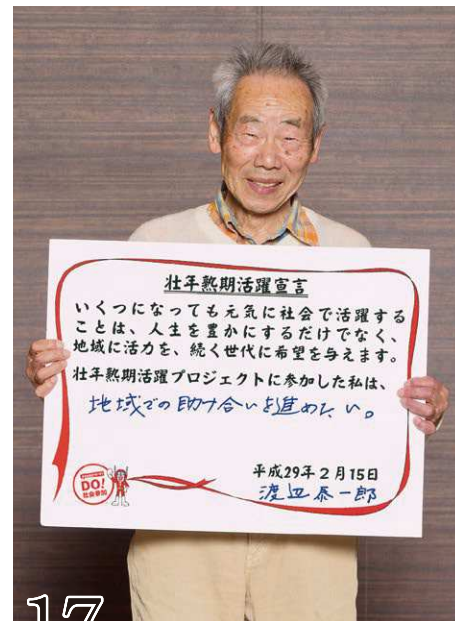 壮年熟期活躍宣言
いくつになっても元気に社会で活躍する
ことは、人生を豊かにするだけでなく、
地域に活力を、続く世代に希望を与えます。
壮年熟期活躍プロジェクトに参加した私は、
地域での助け合いを進めたい。
平成29年2月15日
渡辺泰一郎
DO!
社会参加
17